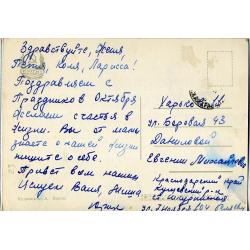 Здравствуйте, Женя,
Петя, Коля, Лариса!
Поздравляем с
Праздником Октября
счастья в
жизни. Вы от мамы
знаете о нашей жизни
пишите о себе.
Привет вам мама
Ваня,
Харьков
ул. Боровая 93
Даниловой
Евгении Михайловне
Краснодарский край
Кущевский р-н
ст. Шкуринская